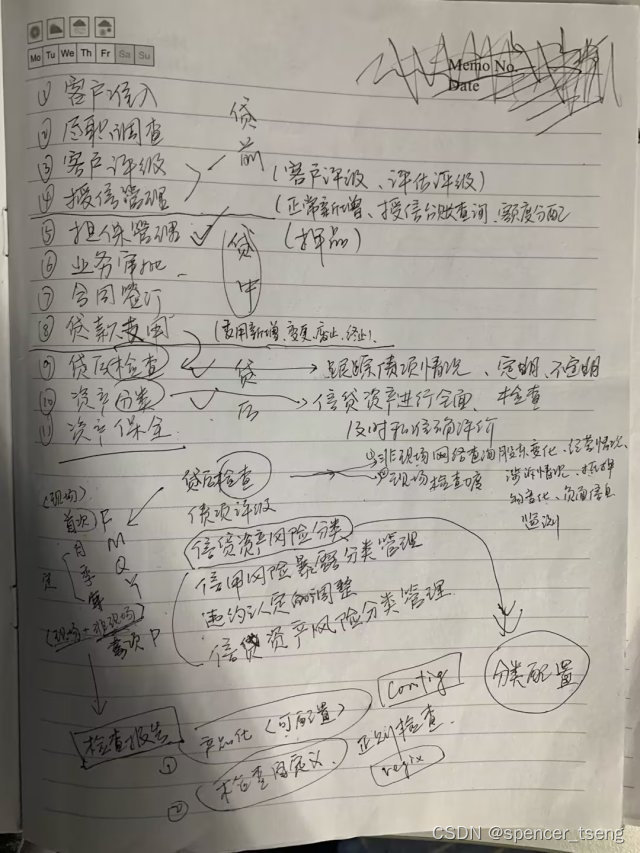 Mo Tu We Th Fr Sa Su
Memo No.
Date
① 客户准入
② 尽职调查
③ 客户评级
④ 授信管理
贷前
(客户评级、评估评级)
(正常新增、授信台账查询、额度分配
⑤ 担保管理
(押品)
⑥ 业务审批
⑦ 合同签订
⑧ 贷款支用
贷中
(支用新增、变更、废止、终止).
⑨ 贷后检查
贷后
跟踪债项情况、定期、不定期
⑩ 资产分类
信贷资产进行全面、检查
及时和准确评价
⑪ 资产保全
贷后检查
非现场网络查询 股东变化、经营情况、
现场检查
涉诉情况、抵押
的变化、负面信息
监测
(现场)
首次 F
月 M
季 Q
年 Y
定
(现场+非现场)
P
债项评级
信贷资产风险分类
信用风险暴露分类管理
违约认定的调整
信贷资产风险分类管理
分类配置
Config
检查报告
① 产品化 (可配置)
② 检查自定义
正则检查.
regix
CSDN @spencer_tseng